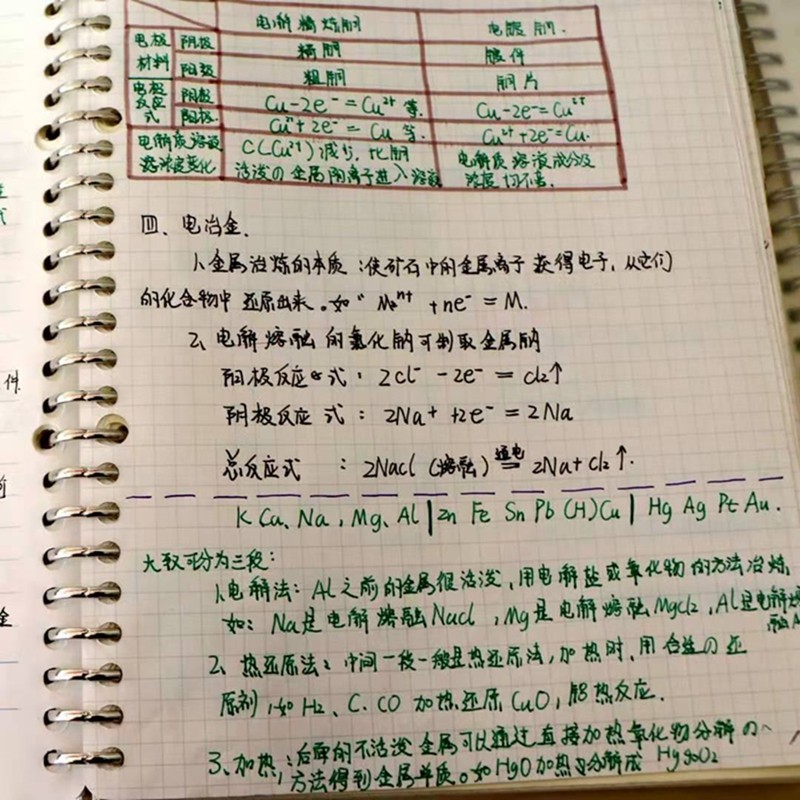 电解精炼铜 电镀铜.
电极材料 阴极 精铜 镀件
阳极 粗铜 铜片
电极反应式 阳极 Cu-2e⁻=Cu²⁺等. Cu-2e⁻=Cu²⁺
阴极. Cu²⁺+2e⁻=Cu等. Cu²⁺+2e⁻=Cu.
电解质溶液 C(Cu²⁺)减少, 比铜 电解质溶液成分及
溶浓度变化 活泼的金属阳离子进入溶液 浓度均不变.
四、电冶金.
1、金属冶炼的本质:使矿石中的金属离子获得电子,从它们
的化合物中还原出来。如" Mⁿ⁺+ne⁻=M.
2、电解熔融的氯化钠可制取金属钠
阳极反应式: 2Cl⁻-2e⁻=Cl₂↑
阴极反应式: 2Na⁺+2e⁻=2Na
总反应式 : 2NaCl(熔融) 通电 = 2Na+Cl₂↑.
K Ca、Na,Mg、Al|Zn Fe Sn Pb (H)Cu| Hg Ag Pt Au.
大致可分为三段:
1、电解法:Al之前的金属很活泼,用电解盐或氧化物的方法冶炼,
如:Na是电解熔融NaCl,Mg是电解熔融MgCl₂,Al是电解熔
融
2、热还原法:中间一段一般是热还原法,加热时,用合适の还
原剂,如H₂、C、CO加热还原CuO,铝热反应.
3、加热:后面的不活泼金属可以通过直接加热氧化物分解の
方法得到金属单质。如HgO加热分解成 Hg